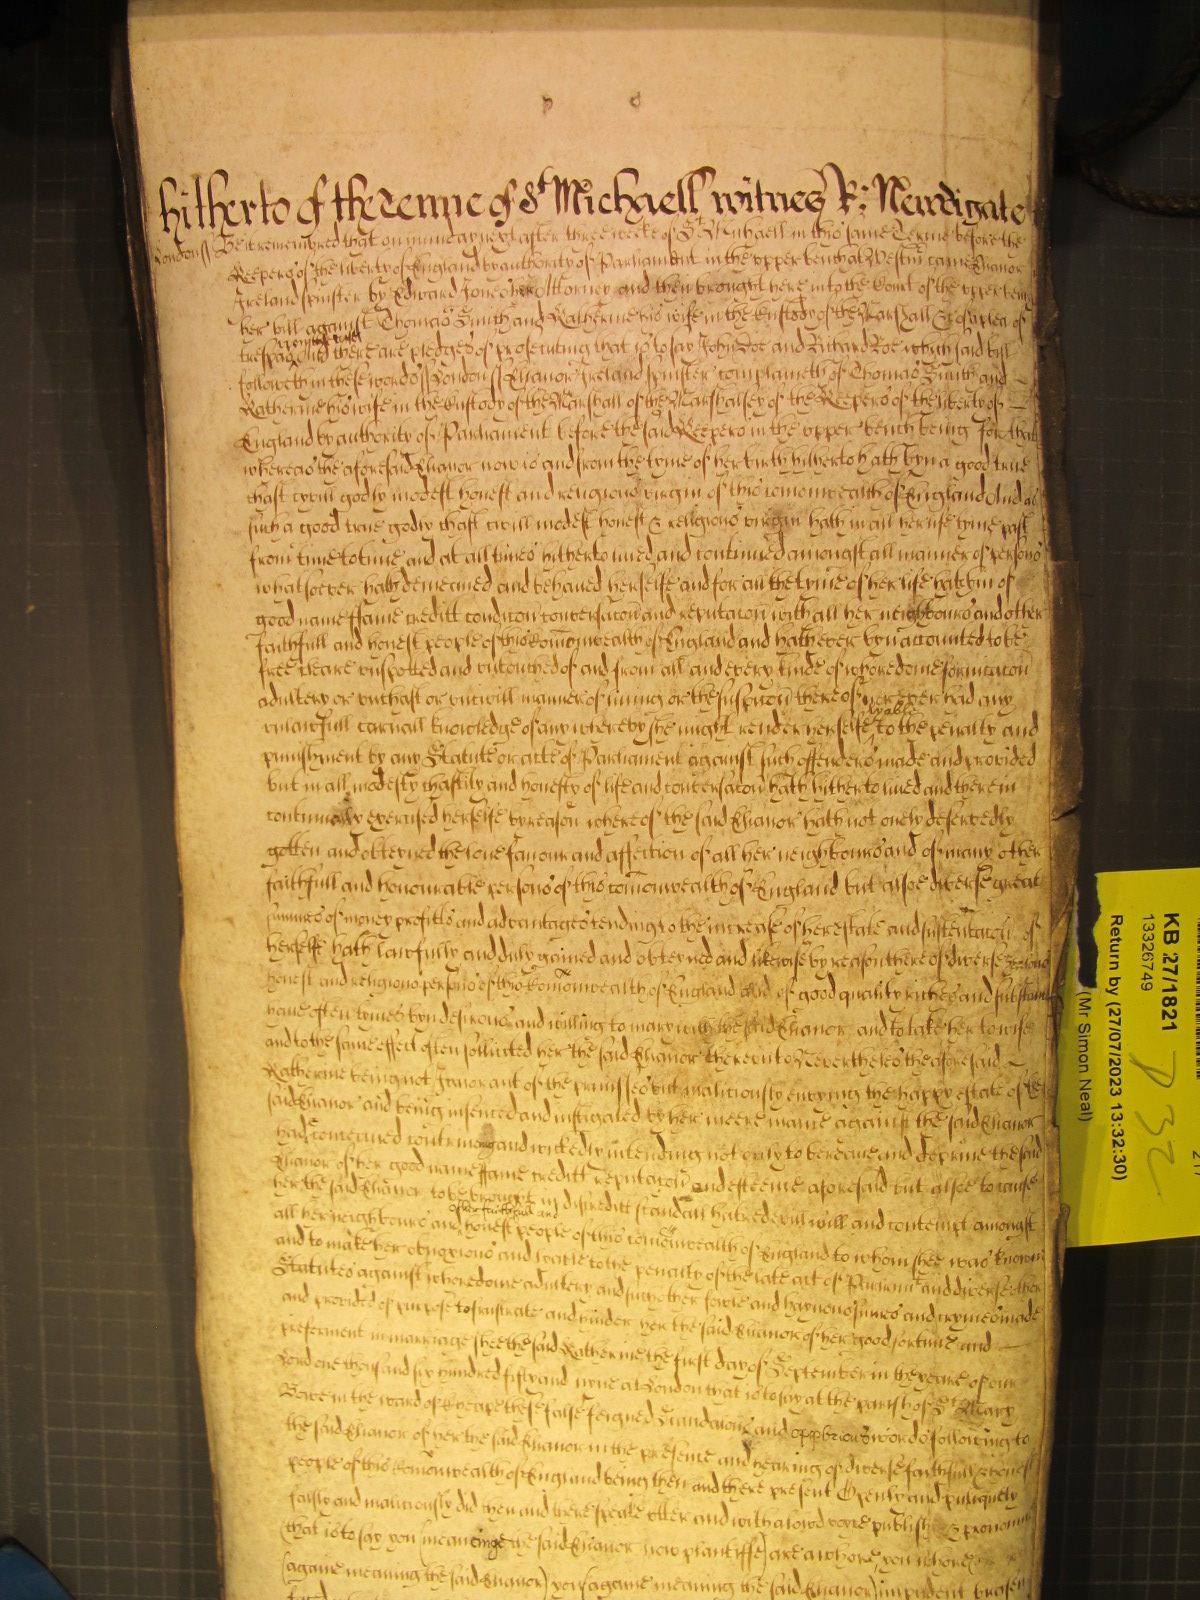 hitherto of the Terme of St Michaell witnes R: Newdigate
London ss Be it remembred that on munday next after three weeks of St Michaell in this same Terme before the
Keepers of the liberty of England by authority of Parliament in the upper bench at Westm came Elianor
Ireland spinster by Edward Jones her Attorney and then brought here into the Court of the upper bench
her bill against Thomas Smith and Katherine his wife in the Custody of the Marshall &c of a plea of
trespas and there are pledges of prosecuting that is to say John Doe and Richard Roe which said bill
followeth in these words ss London ss Elianor Ireland spinster complaineth of Thomas Smith and
Katherine his wife in the Custody of the Marshall of the Marshalsey of the Keepers of the liberty of
England by authority of Parliament before the said Keepers in the upper bench being for that
whereas the aforesaid Elianor now is and from the tyme of her birth hitherto hath byn a good true
chast civill godly modest honest and religious virgin of this comonwealth of England And as
such a good true godly chast civill modest honest & religious virgin hath in all her life tyme past
from time to time and at all times hitherto lived and continued amongst all manner of persons
whatsoever hath demeaned and behaved herselfe and for all the tyme of her life hath bin of
good name ffame creditt condicon conversacon and reputacon with all her neighbours and other
faithfull and honest people of this Comonwealth of England and hath ever byn accounted to be
free cleare unspotted and untouched of and from all and every kinde of whoredome fornicacon
adultery or unchast or uncivill manner of living or the suspicon thereof nor ever had any
unlawfull carnall knowledge of any whereby she might render herselfe lyable to the penalty and
punishment by any Statute or acte of Parliament against such offenders made and provided
but in all modesty chastity and honesty of life and conversacon hath hitherto lived and therein
continually exercised herselfe by reason whereof the said Elianor hath not onely deservedly
gotten and obteyned the love favour and affection of all her neighbours and of many other
faithfull and honourable persons of this comonwealth of England but alsoe diverse great
summes of money profitts and advantages tending to the increase of her estate and sustentacon of
herselfe hath lawfully and duly gained and obteyned and likewise by reason thereof diverse
honest and religious persons of this Comonwealth of England and of good quality riches and substance
have often tymes byn desirous and willing to mary with the said Elianor and to take her to wife
and to the same effect often sollicited her the said Elianor thereunto Neverthelés the aforesaid
Katherine being not Ignorant of the premisses but maliciously envying the happy estate of the
said Elianor and being incensed and instigated by her meere malice against the said Elianor
had conceived contriving and wickedly intending not only to bereave and deprive the said
Elianor of her good name ffame creditt reputacon and esteeme aforesaid but alsoe to cause
her the said Elianor to be brought in discreditt scandall hatred evill will and contempt amongst
all her neighbours and other faithfull and honest people of this comonwealth of England to whom shee was knowne
and to make her obnoxious and lyable to the penalty of the late act of Parliamt and diverse other
Statutes against whoredome adultery and such other fowle and haynous sinnes and crymes made
and provided of purpose to frustrate and hinder her the said Elianor of her good fortune and
preferment in marriage shee the said Katherine the first day of September in the yeare of our
Lord one thousand six hundred fifty and nyne at London that is to say at the parish of St Mary
Bowe in the ward of Cheape these false feigned scandalous and opprobrious words following to
the said Elianor of her the said Elianor in the presence and hearing of diverse faithfull & honest
people of this Comonwealth of England being then and there present Openly and publiquely
falsly and maliciously did then and there speake utter and with a lowd voyce publish & pronounce
that is to say you (meaninge the said Elianor now plantiffe) are a whore, you whore
(againe meaning the said Elianor) you (againe meaning the said Elianor) impudent brasen
KB 27/1821
13326749
Return by (27/07/2023 13:32:30)
(Mr Simon Neal)